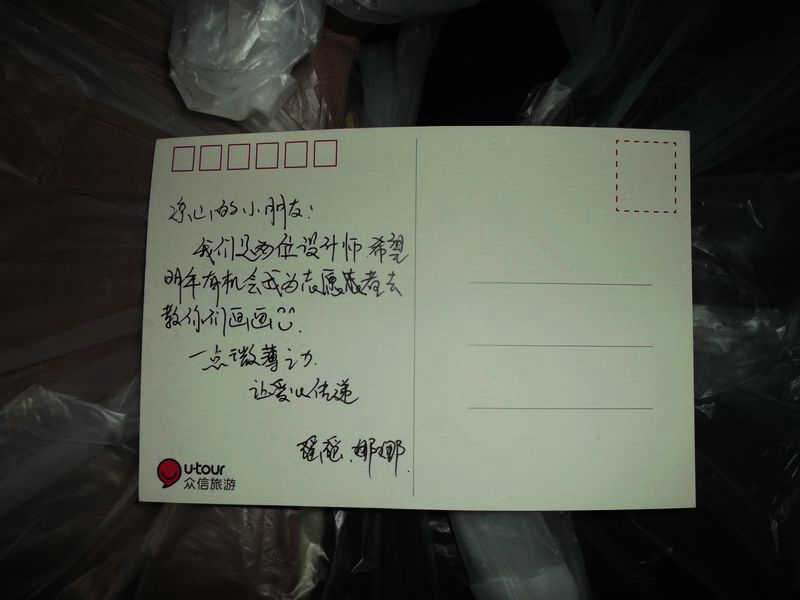 凉山的小朋友:
我们是两位设计师 希望
明年有机会成为志愿者去
教你们画画
一点微薄之力.
让爱心传递
娜娜.
u·tour
众信旅游